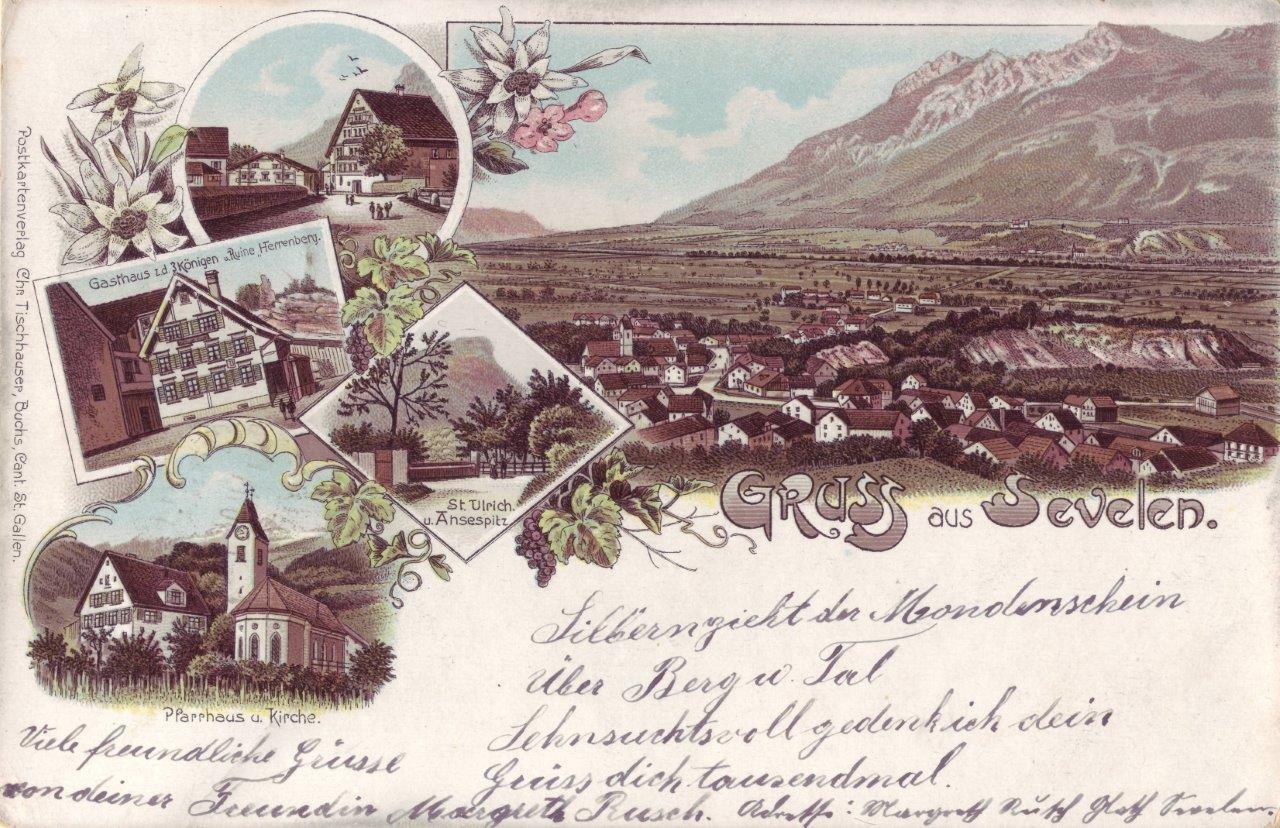 Postkartenverlag Chr. Tischhauser, Buchs, Cant. St. Gallen.
Gasthaus z.d. 3 Königen u. Ruine „Herrenberg.
St. Ulrich.
u. Ansespitz
Pfarrhaus u. Kirche.
Gruss aus Sevelen.
Silbern zieht der Mondenschein
Über Berg u. Tal
Sehnsuchtsvoll gedenk ich dein
Grüss dich tausendmal.
Viele freundliche Grüsse
von deiner Freundin Margreth Rusch. Adresse: Margreth Rusch Sevelen.